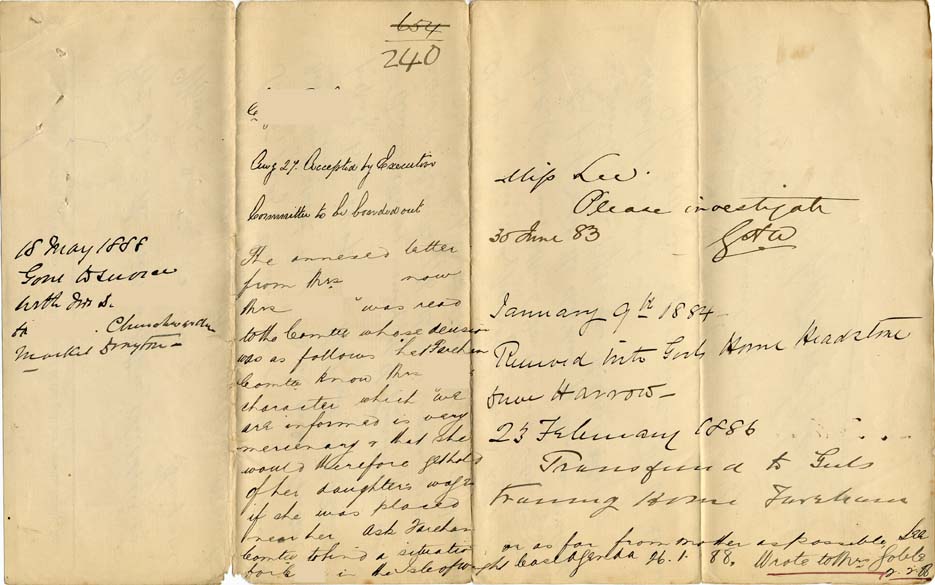 18 May 1888
Gone to service
with Mrs S.
Churchwarden
Market Drayton
654
240
Aug 27. Accepted by Executive
Committee to be boarded out
The annexed letter
from Mrs now
Mrs was read
to the Comtee whose decision
was as follows. "let Fareham
Comtee know Mrs
character which "we
are informed is very
mercenary & that she
would therefore get hold
of her daughters wages
if she was placed
near her Ask Fareham
Comtee to find a situation
in the Isle of Wight
or as far from mother as possible. See
Case Agenda 26.1.88. Wrote to Mrs
2.2.88
Miss Lee.
Please investigate
30 June 83
January 9th 1884
Received into Girls Home Headstone
Drive Harrow
23 February 1886
Transferred to Girls
Training Home Fareham